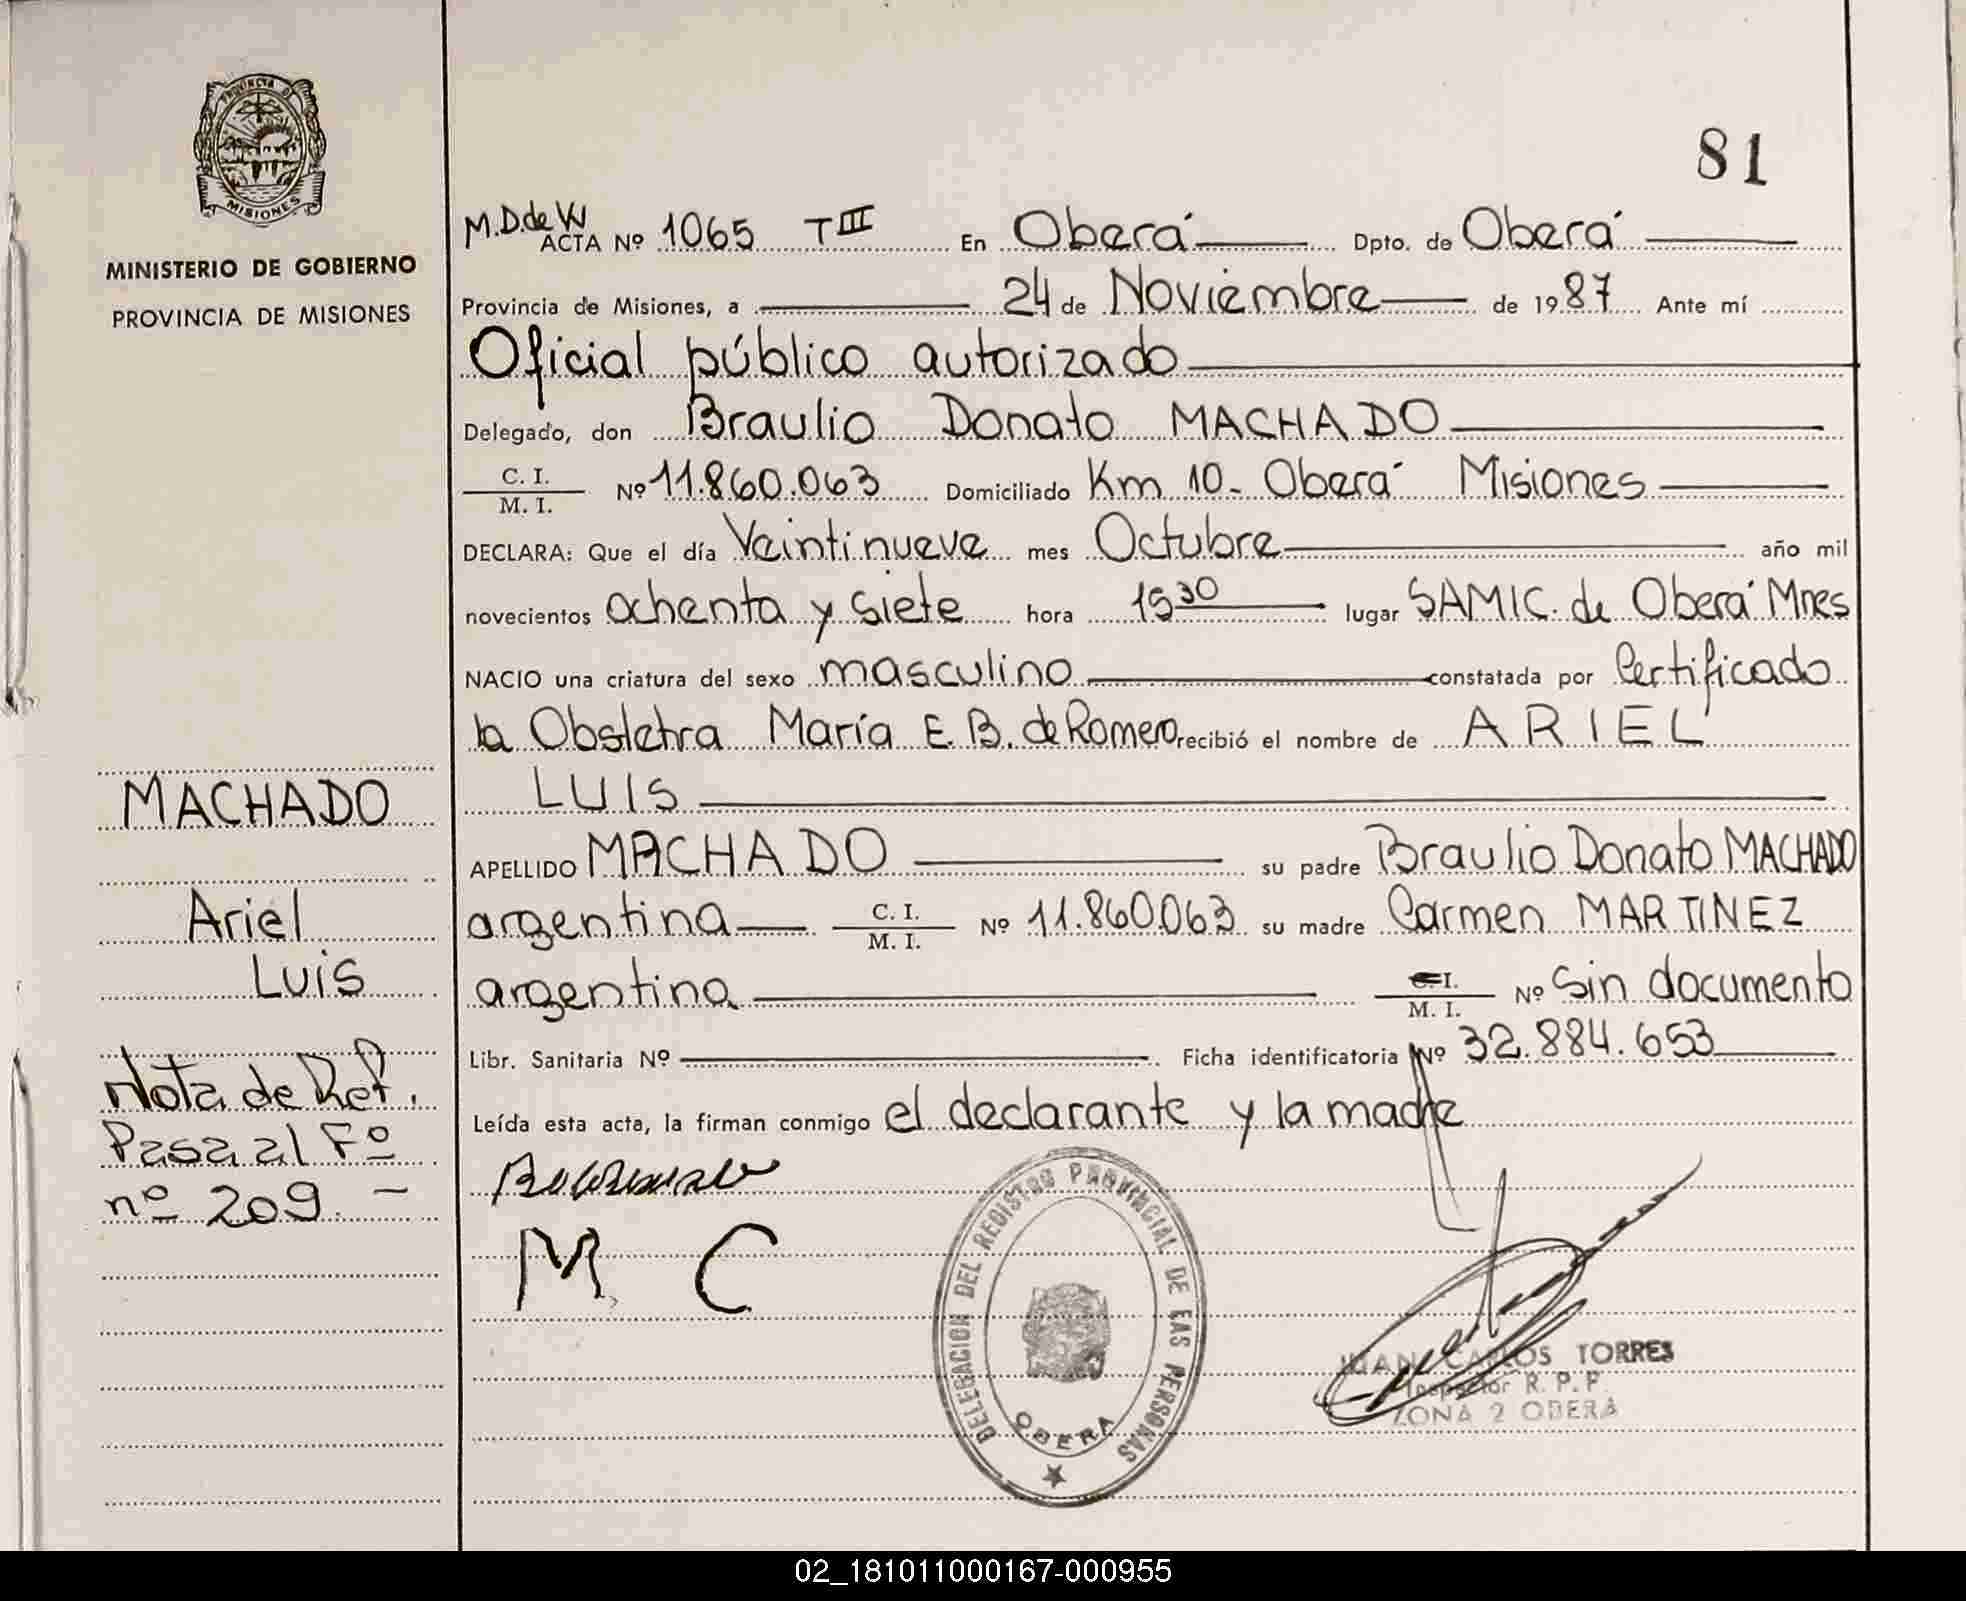 PROVINCIA DE
MISIONES
MINISTERIO DE GOBIERNO
PROVINCIA DE MISIONES
MACHADO
Ariel
Luis
Nota de Ref.
Pasa al Fº
nº 209. -
81
M.D. de W
ACTA Nº 1065 TIII En Oberá Dpto. de Oberá
Provincia de Misiones, a 24 de Noviembre de 1987 Ante mí
Oficial público autorizado
Delegado, don Braulio Donato MACHADO
C. I. / M. I. Nº 11.860.063 Domiciliado Km 10- Oberá Misiones
DECLARA: Que el día Veintinueve mes Octubre año mil
novecientos ochenta y siete hora 1530 lugar SAMIC. de Oberá Mnes
NACIO una criatura del sexo masculino constatada por Certificado
la Obstetra María E. B. de Romero recibió el nombre de ARIEL
LUIS
APELLIDO MACHADO su padre Braulio Donato MACHADO
argentina C. I. / M. I. Nº 11.860.063 su madre Carmen MARTINEZ
argentina C. I. / M. I. Nº Sin documento
Libr. Sanitaria Nº Ficha identificatoria Nº 32.884.653
Leída esta acta, la firman conmigo el declarante y la madre
M C
DELEGACION DEL REGISTRO PROVINCIAL DE LAS PERSONAS
OBERA
JUAN CARLOS TORRES
Inspector R. P. P.
ZONA 2 OBERA
02_181011000167-000955